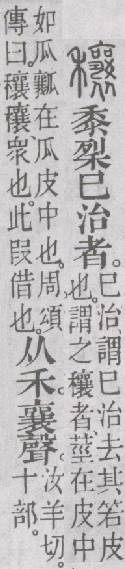 穰黍𥞥巳治者。巳治謂巳治去其箬皮也。謂之穰者莖在皮中
如瓜瓤在瓜皮中也。周頌傳曰。穰穰衆也。此叚借也。从禾。襄聲。汝羊切。十部。